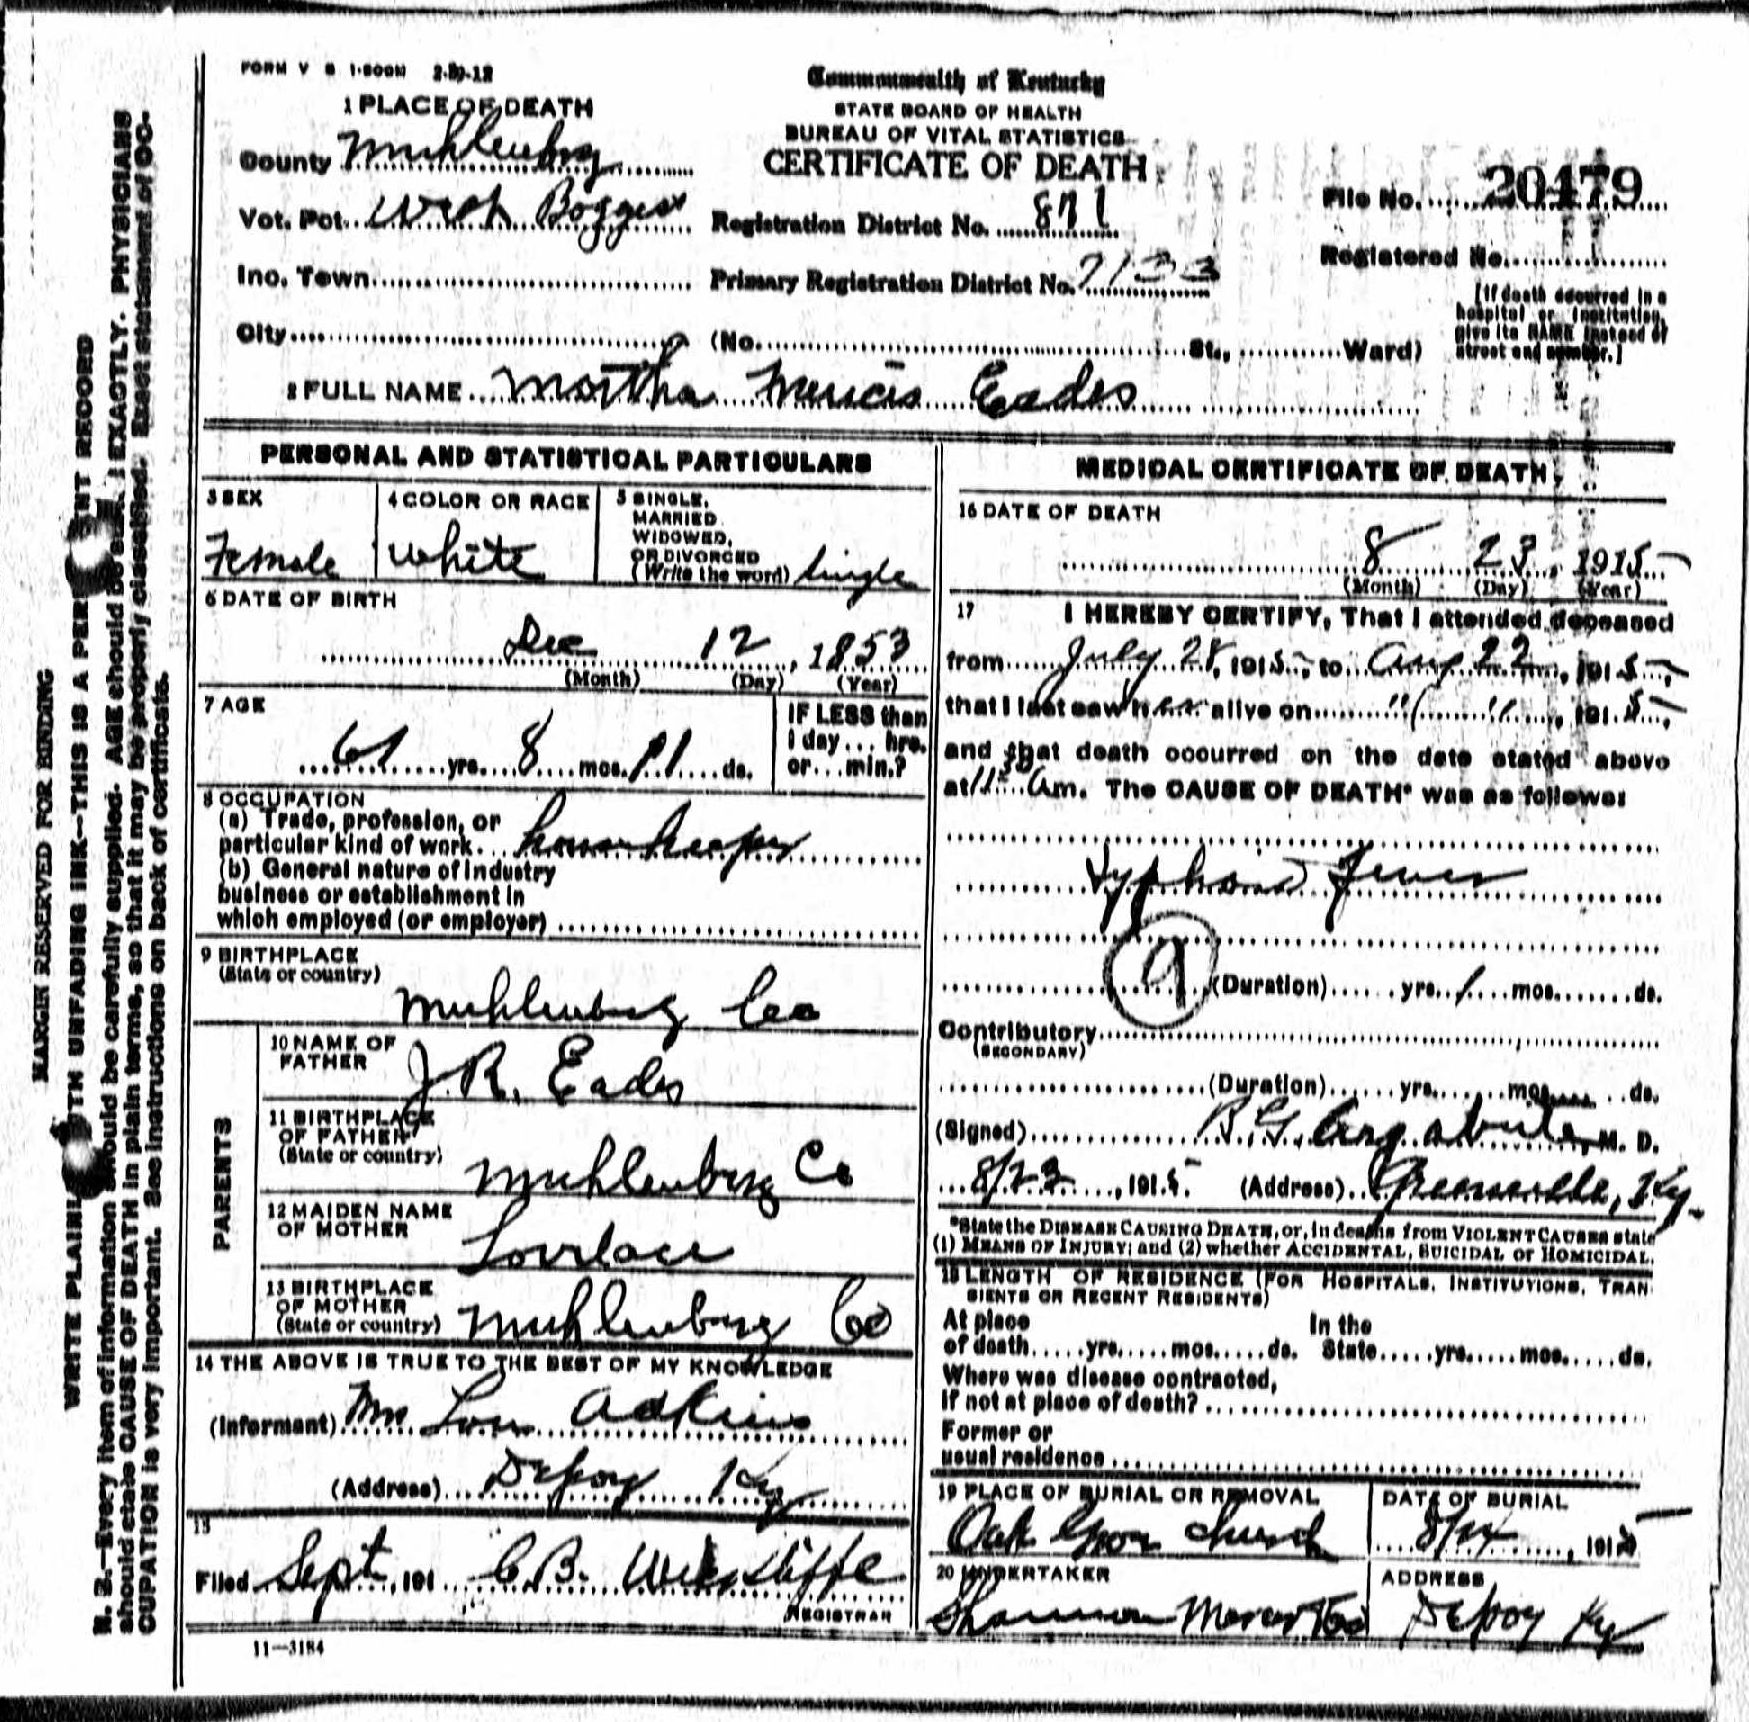 FORM V S 1-500M 2-29-12
Commonwealth of Kentucky
STATE BOARD OF HEALTH
BUREAU OF VITAL STATISTICS
CERTIFICATE OF DEATH
1 PLACE OF DEATH
County Muhlenberg
Vot. Pct. West Boggess
Inc. Town
City (No. St., Ward)
Registration District No. 871
Primary Registration District No. 7133
File No. 20479
Registered No.
[If death occurred in a
hospital or institution,
give its NAME instead of
street and number.]
2 FULL NAME Martha Francis Eades
PERSONAL AND STATISTICAL PARTICULARS
3 SEX
Female
4 COLOR OR RACE
White
5 SINGLE,
MARRIED
WIDOWED,
OR DIVORCED
(Write the word) Single
6 DATE OF BIRTH
Dec 12, 1853
(Month) (Day) (Year)
7 AGE
61 yrs. 8 mos. 11 ds.
IF LESS than
1 day... hrs.
or... min.?
8 OCCUPATION
(a) Trade, profession, or
particular kind of work housekeeper
(b) General nature of industry
business or establishment in
which employed (or employer)
9 BIRTHPLACE
(State or country)
Muhlenberg Co
PARENTS
10 NAME OF
FATHER
J R. Eades
11 BIRTHPLACE
OF FATHER
(State or country)
Muhlenberg Co
12 MAIDEN NAME
OF MOTHER
Lovelace
13 BIRTHPLACE
OF MOTHER
(State or country) Muhlenberg Co
14 THE ABOVE IS TRUE TO THE BEST OF MY KNOWLEDGE
(Informant) Mrs Lou Adkins
(Address) Depoy Ky
15
Filed Sept, 191 C.B. Wickliffe
REGISTRAR
11—3184
MEDICAL CERTIFICATE OF DEATH
16 DATE OF DEATH
8 23, 1915
(Month) (Day) (Year)
17 I HEREBY CERTIFY, That I attended deceased
from July 28, 1915, to Aug 22, 1915,
that I last saw her alive on " ", 1915,
and that death occurred on the date stated above
at Am. The CAUSE OF DEATH* was as follows:
Typhoid Fever
9 (Duration) yrs. 1 mos. ds.
Contributory
(SECONDARY)
(Duration) yrs. mos. ds.
(Signed) R. G. Argabrite, M. D.
8/23, 1915. (Address) Greenville, Ky.
*State the DISEASE CAUSING DEATH, or, in deaths from VIOLENT CAUSES state
(1) MEANS OF INJURY; and (2) whether ACCIDENTAL, SUICIDAL or HOMICIDAL.
18 LENGTH OF RESIDENCE (FOR HOSPITALS, INSTITUTIONS, TRAN-
SIENTS OR RECENT RESIDENTS)
At place
of death yrs. mos. ds.
In the
State yrs. mos. ds.
Where was disease contracted,
If not at place of death?
Former or
usual residence
19 PLACE OF BURIAL OR REMOVAL
Oak Grove Church
DATE OF BURIAL
8/24, 1915
20 UNDERTAKER
Shannon Merc
ADDRESS
Depoy Ky
MARGIN RESERVED FOR BINDING
WRITE PLAINLY WITH UNFADING INK—THIS IS A PERMANENT RECORD
N. B.—Every item of information should be carefully supplied. AGE should be stated EXACTLY. PHYSICIANS
should state CAUSE OF DEATH in plain terms, so that it may be properly classified. Exact statement of OC-
CUPATION is very important. See instructions on back of certificate.